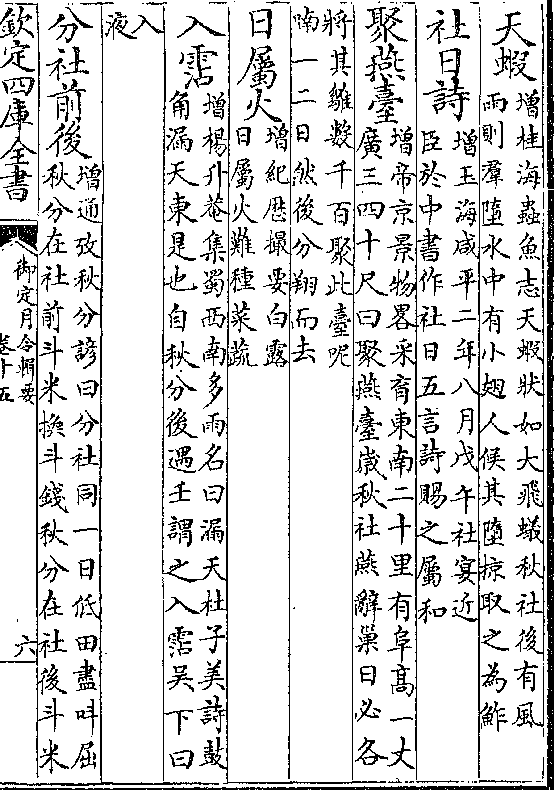 天蝦增桂海蟲魚志天蝦狀如大飛蟻秋社後有風
雨則羣墮水中有小翅人候其墮掠取之為鮓
社日詩增玉海咸平二年八月戊午社宴近
臣於中書作社日五言詩賜之屬和
聚燕臺增帝京景物畧采育東南二十里有阜高一丈
廣三四十尺曰聚燕臺歲秋社燕辭巢日必各
將其雛數千百聚此臺呢
喃一二日然後分翔而去
日屬火增紀歴撮要白露
日屬火難種菜蔬
入霑增楊升菴集蜀西南多雨名曰漏天杜子美詩鼓
角漏天東是也自秋分後遇壬謂之入霑吳下曰
入
液
分社前後增通攷秋分諺曰分社同一日低田盡呌屈
秋分在社前斗米換斗錢秋分在社後斗米
欽定四庫全書
御定月令輯要
卷十五
六